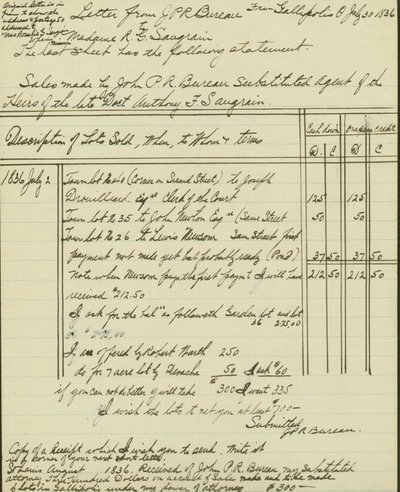 Original letter is in
Letter from J P R Bureau
From Gallipolis O July 30 1836
address & postage 50
addressed to
Mrs Rosalie G Saugrain
St Louis
Missouri
to
Madame R. G. Saugrain
The last sheet has the following statement.
Sales made by John P. R. Bureau Substituted Agent of the
Heirs of the late Doct Anthony F. Saugrain.
Description of Lots Sold, When, to Whom & terms
Cash down
One year credit
D. C D C
1836 July 2 Town lot No (Corner on Second Street) to Joseph
Drouilliard Esqr Clerk of the Court 125 125
Town lot No 35 to John Newton Esqr (Same Street 50 50
Town lot No 26 to Lewis Newsom Same Street first
payment not made yet but probably ready (Pond) 37 50 37 50
Note when Newsom pays the first paymt I will have 212 50 212 50
received $212.50
I ask for the bal as followeth Garden lot and lot
36 275,00
I am offered by Robert 250
do for 7 acre lot by 50 I ask $60
if you can not do better I will take $300 I want 335
I wish the lots to net you at least $700-
Submitted
J P R Bureau.
Copy of a Receipt which I wish you to send. Write it
in a corner of your next letter.
St Louis August 1836. Received of John P. R. Bureau my Substituted
attorney Hundred Dollars on account of Sales made and to be made
of lots in Gallipolis under my power of attorney $ 300-